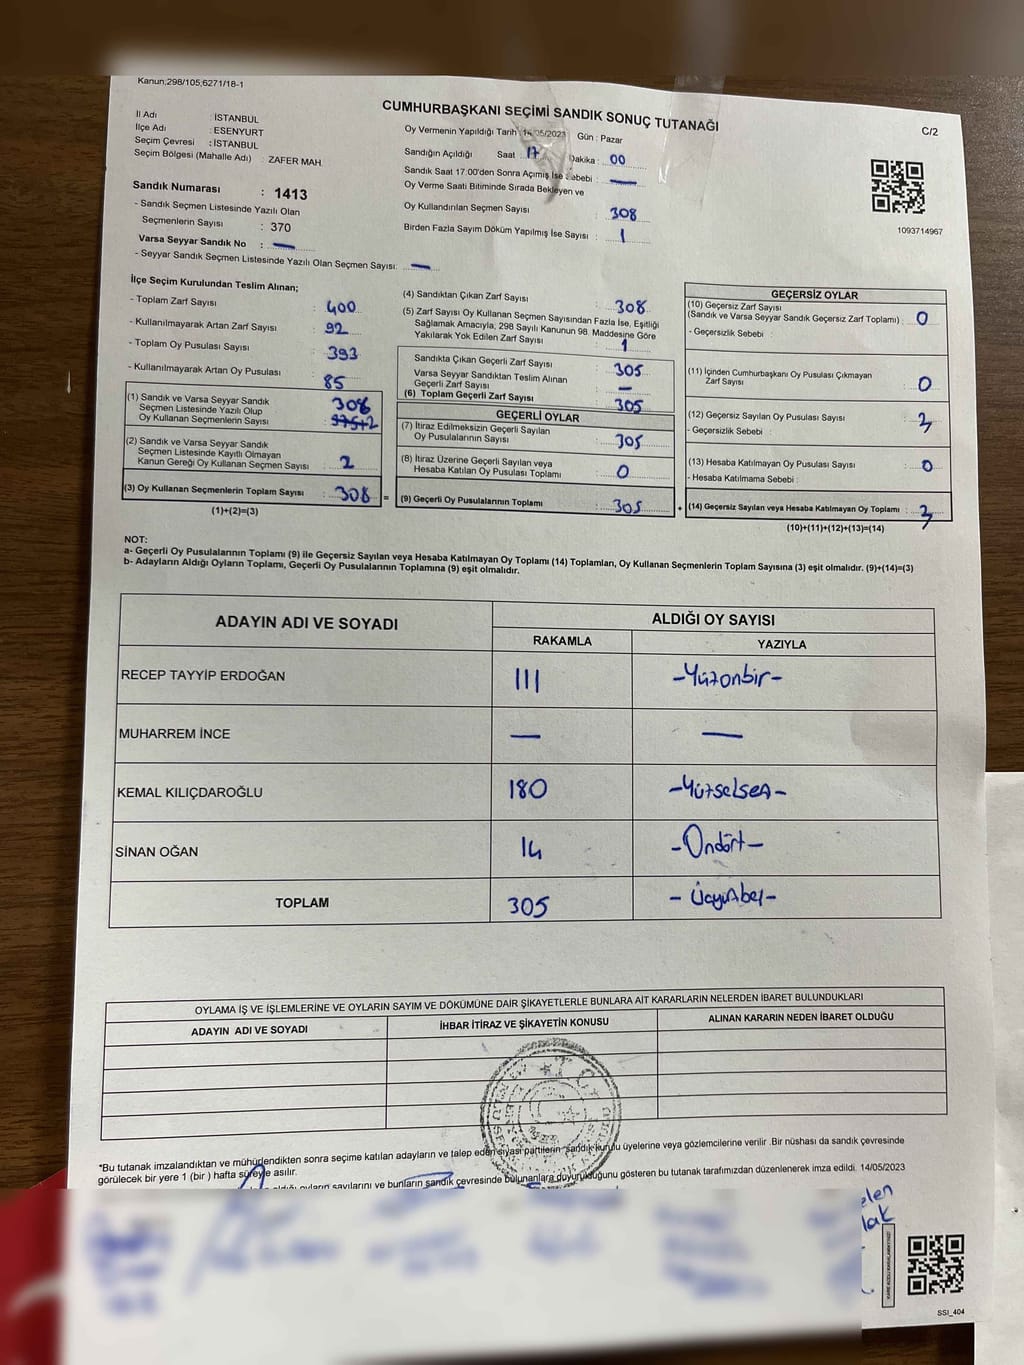 Kanun;298/105;6271/18-1
CUMHURBAŞKANI SEÇİMİ SANDIK SONUÇ TUTANAĞI
C/2
İl Adı : İSTANBUL
İlçe Adı : ESENYURT
Seçim Çevresi : İSTANBUL
Seçim Bölgesi (Mahalle Adı) : ZAFER MAH.
Sandık Numarası : 1413
- Sandık Seçmen Listesinde Yazılı Olan
Seçmenlerin Sayısı : 370
Varsa Seyyar Sandık No : —
- Seyyar Sandık Seçmen Listesinde Yazılı Olan Seçmen Sayısı: —
Oy Vermenin Yapıldığı Tarih 14/05/2023 Gün : Pazar
Sandığın Açıldığı Saat : 17 Dakika : 00
Sandık Saat 17.00'den Sonra Açımış İse Sebebi : —
Oy Verme Saati Bitiminde Sırada Bekleyen ve
Oy Kullandırılan Seçmen Sayısı : 308
Birden Fazla Sayım Döküm Yapılmış İse Sayısı : 1
1093714967
İlçe Seçim Kurulundan Teslim Alınan;
- Toplam Zarf Sayısı : 400
- Kullanılmayarak Artan Zarf Sayısı : 92
- Toplam Oy Pusulası Sayısı : 393
- Kullanılmayarak Artan Oy Pusulası : 85
(1) Sandık ve Varsa Seyyar Sandık
Seçmen Listesinde Yazılı Olup
Oy Kullanan Seçmenlerin Sayısı : 308
(2) Sandık ve Varsa Seyyar Sandık
Seçmen Listesinde Kayıtlı Olmayan
Kanun Gereği Oy Kullanan Seçmen Sayısı : 2
(3) Oy Kullanan Seçmenlerin Toplam Sayısı : 308 =
(1)+(2)=(3)
(4) Sandıktan Çıkan Zarf Sayısı : 308
(5) Zarf Sayısı Oy Kullanan Seçmen Sayısından Fazla İse, Eşitliği
Sağlamak Amacıyla, 298 Sayılı Kanunun 98. Maddesine Göre
Yakılarak Yok Edilen Zarf Sayısı : 1
Sandıkta Çıkan Geçerli Zarf Sayısı : 305
Varsa Seyyar Sandıktan Teslim Alınan
Geçerli Zarf Sayısı : —
(6) Toplam Geçerli Zarf Sayısı : 305
GEÇERLİ OYLAR
(7) İtiraz Edilmeksizin Geçerli Sayılan
Oy Pusulalarının Sayısı : 305
(8) İtiraz Üzerine Geçerli Sayılan veya
Hesaba Katılan Oy Pusulası Toplamı : 0
(9) Geçerli Oy Pusulalarının Toplamı : 305 +
GEÇERSİZ OYLAR
(10) Geçersiz Zarf Sayısı
(Sandık ve Varsa Seyyar Sandık Geçersiz Zarf Toplamı) : 0
- Geçersizlik Sebebi :
(11) İçinden Cumhurbaşkanı Oy Pusulası Çıkmayan
Zarf Sayısı : 0
(12) Geçersiz Sayılan Oy Pusulası Sayısı : 3
- Geçersizlik Sebebi :
(13) Hesaba Katılmayan Oy Pusulası Sayısı : 0
- Hesaba Katılmama Sebebi :
(14) Geçersiz Sayılan veya Hesaba Katılmayan Oy Toplamı : 3
(10)+(11)+(12)+(13)=(14)
NOT:
a- Geçerli Oy Pusulalarının Toplamı (9) ile Geçersiz Sayılan veya Hesaba Katılmayan Oy Toplamı (14) Toplamları, Oy Kullanan Seçmenlerin Toplam Sayısına (3) eşit olmalıdır. (9)+(14)=(3)
b- Adayların Aldığı Oyların Toplamı, Geçerli Oy Pusulalarının Toplamına (9) eşit olmalıdır.
ADAYIN ADI VE SOYADI
ALDIĞI OY SAYISI
RAKAMLA
YAZIYLA
RECEP TAYYİP ERDOĞAN 111 -Yüzonbir-
MUHARREM İNCE — —
KEMAL KILIÇDAROĞLU 180 -Yüzseksen-
SİNAN OĞAN 14 -Ondört-
TOPLAM 305 -Üçyüzbeş-
OYLAMA İŞ VE İŞLEMLERİNE VE OYLARIN SAYIM VE DÖKÜMÜNE DAİR ŞİKAYETLERLE BUNLARA AİT KARARLARIN NELERDEN İBARET BULUNDUKLARI
ADAYIN ADI VE SOYADI
İHBAR İTİRAZ VE ŞİKAYETİN KONUSU
ALINAN KARARIN NEDEN İBARET OLDUĞU
*Bu tutanak imzalandıktan ve mühürlendikten sonra seçime katılan adayların ve talep eden siyasi partilerin sandık kurulu üyelerine veya gözlemcilerine verilir .Bir nüshası da sandık çevresinde
görülecek bir yere 1 (bir ) hafta süreyle asılır.
aldığı oyların sayılarını ve bunların sandık çevresinde bulunanlara duyurulduğunu gösteren bu tutanak tarafımızdan düzenlenerek imza edildi. 14/05/2023
SSI_404